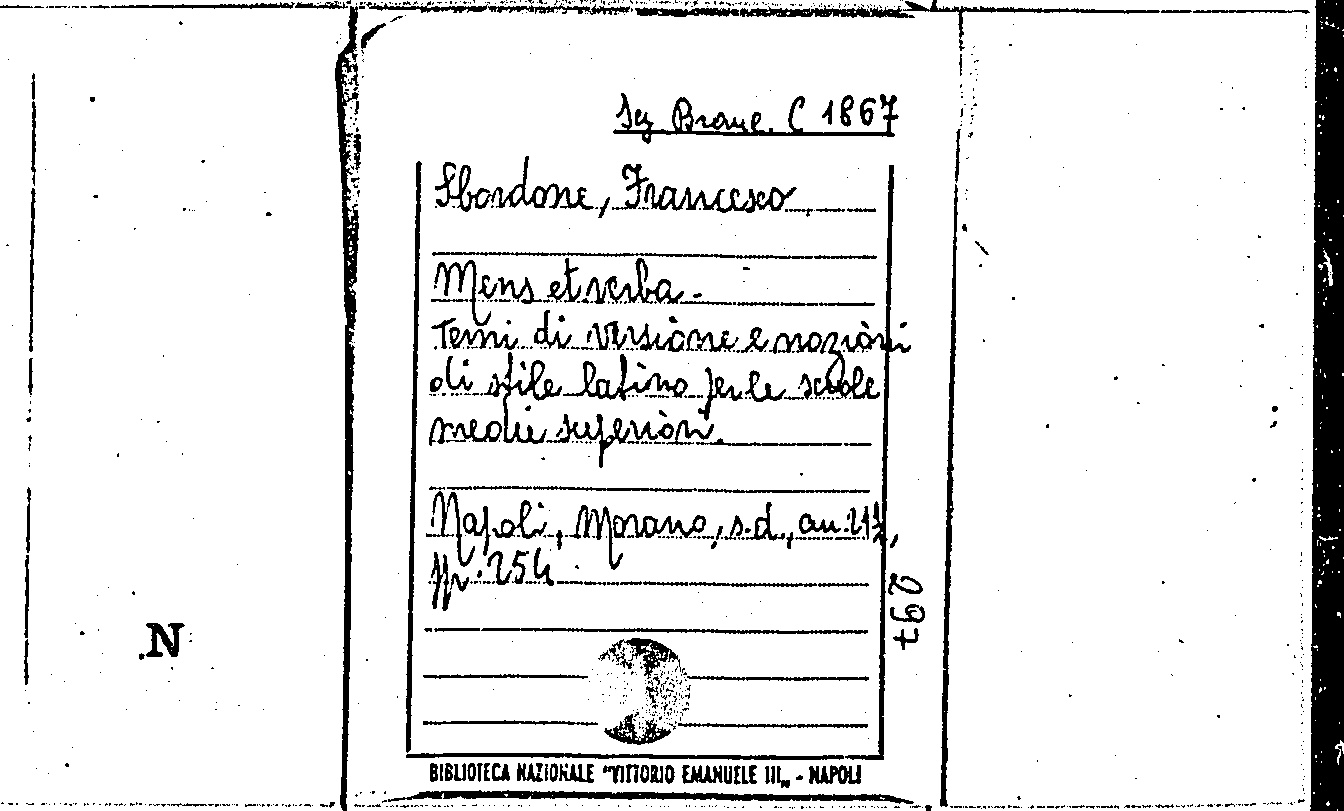 Sez Branc. C 1867
Sbordone, Francesco
Mens et verba -
Temi di versione e nozioni
di stile latino per le scuole
medie superiori.
Napoli, Morano, s.d., cm. 21½,
pp. 254
297
N
BIBLIOTECA NAZIONALE "VITTORIO EMANUELE III„ - NAPOLI